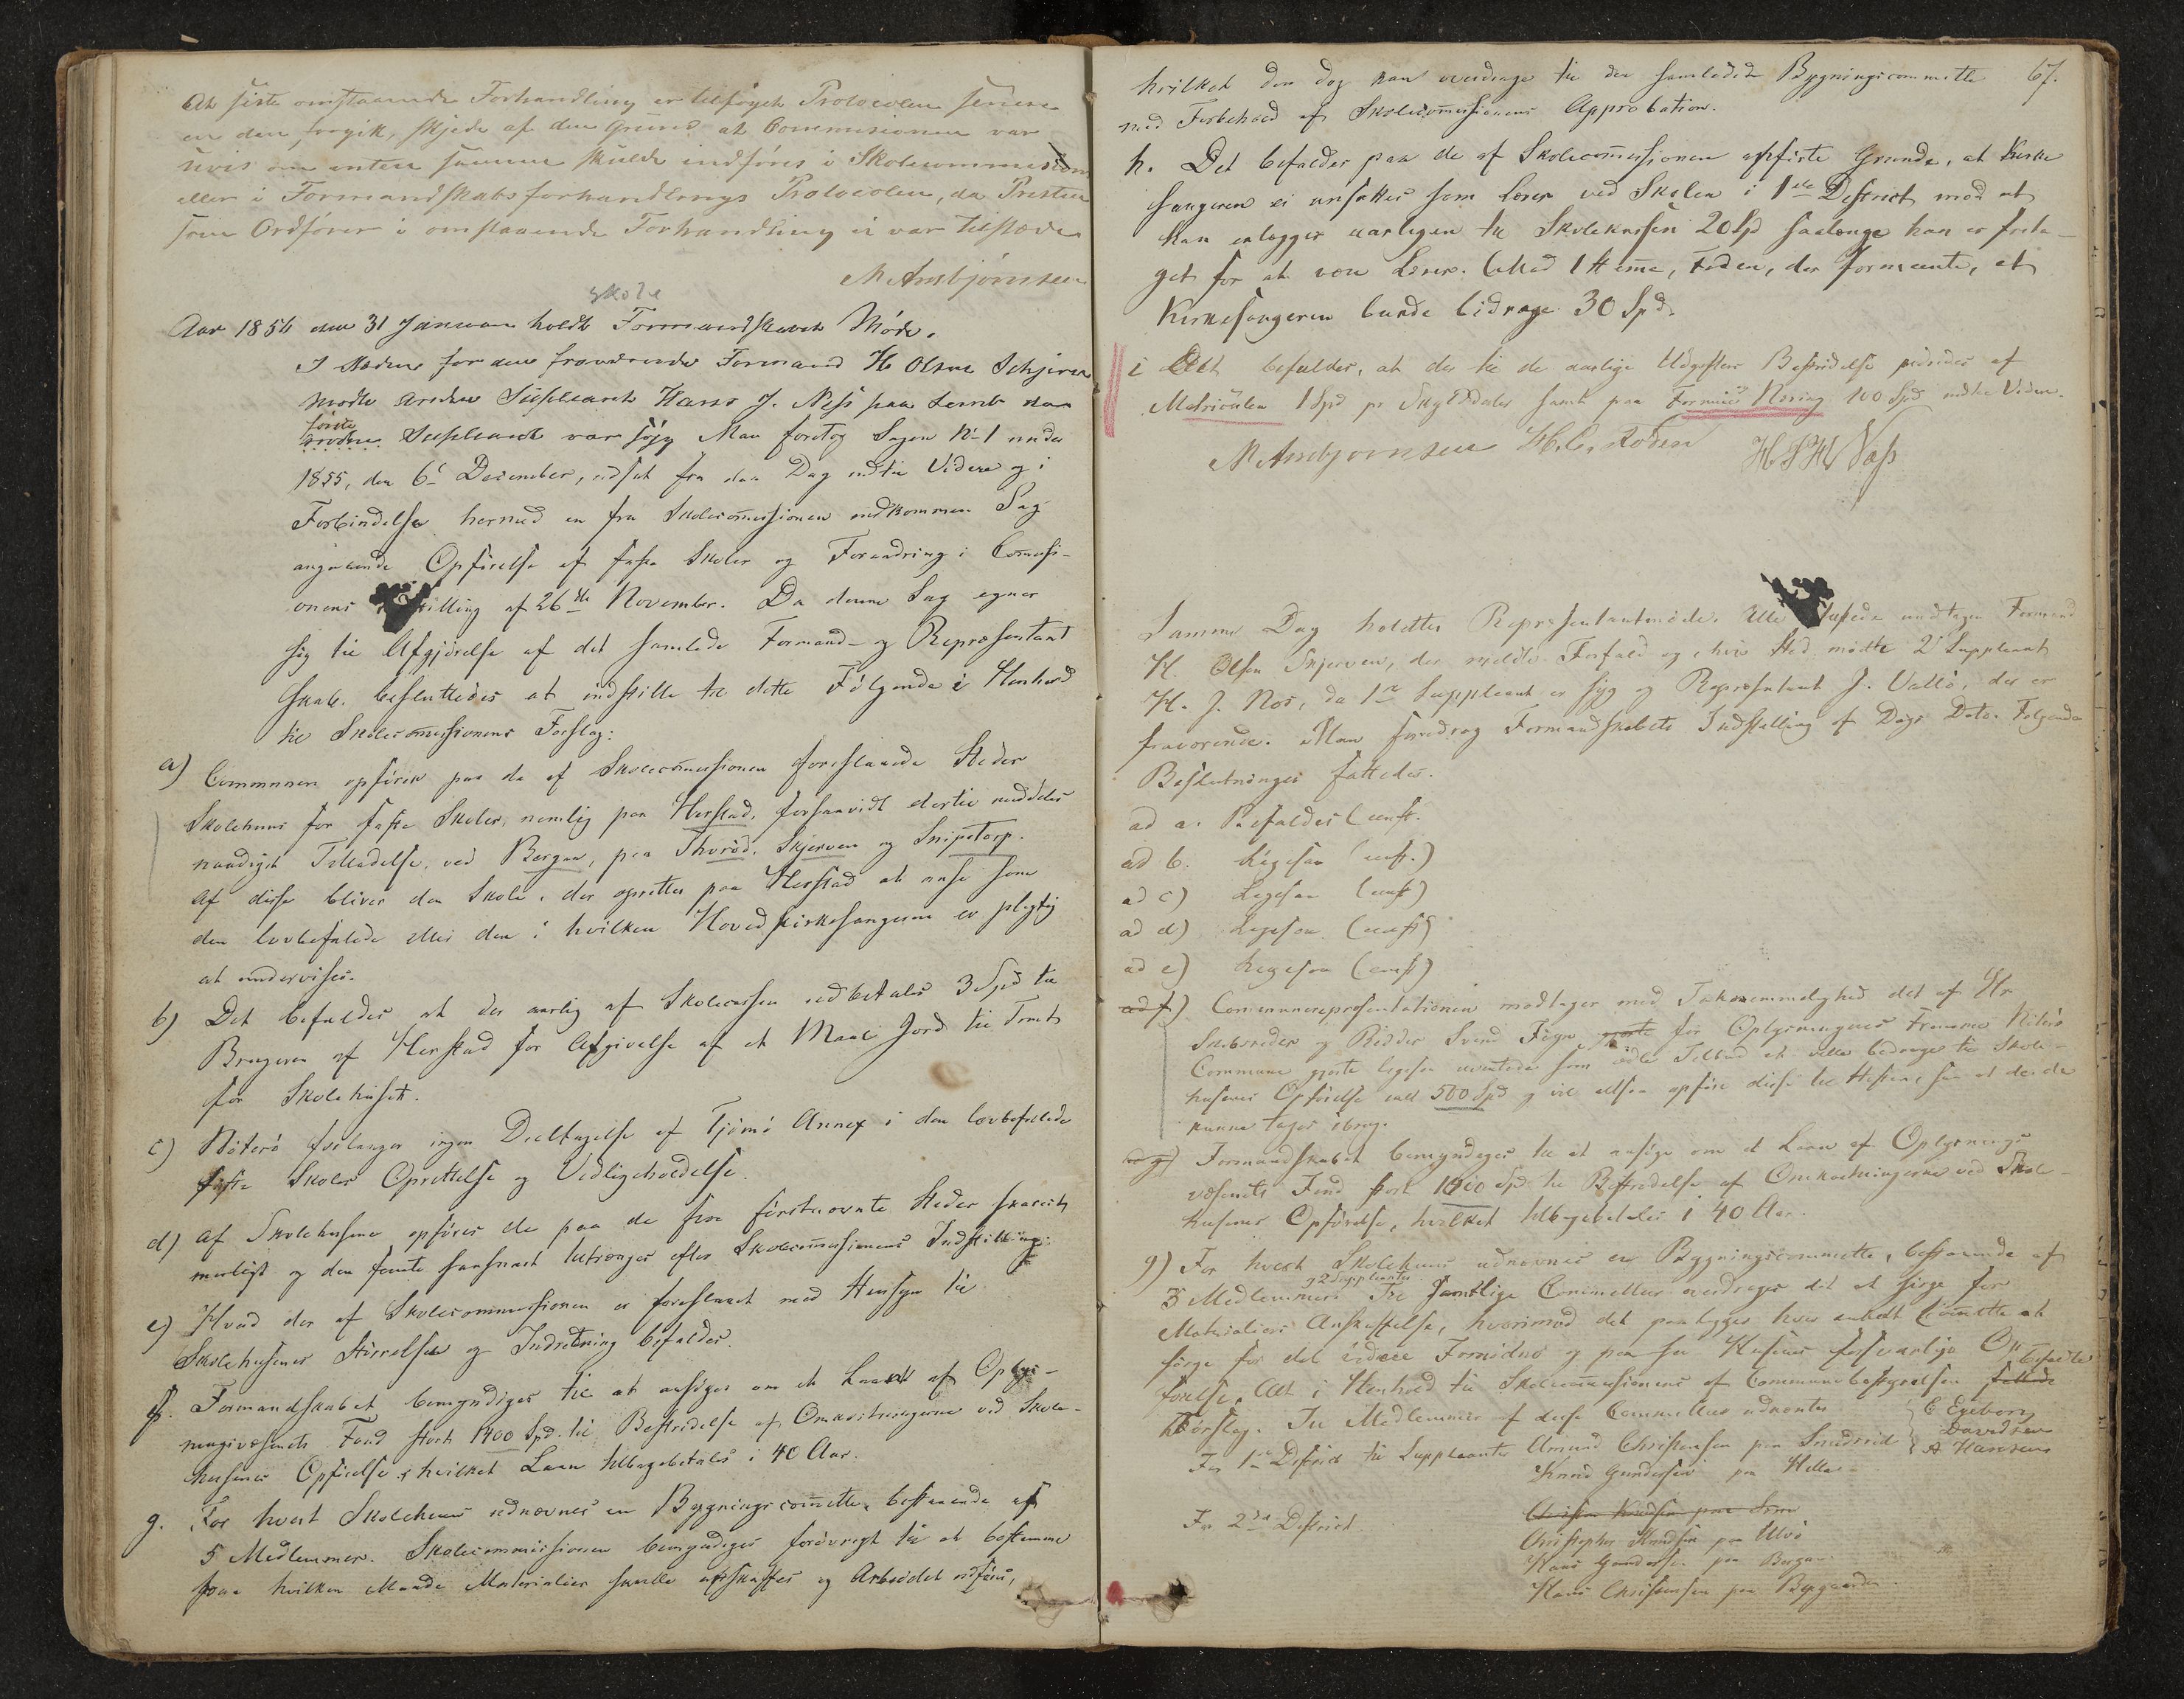 At siste omstaaende Forhandling er tilføyet Protocolen senere
en den foregik, skjede af den Grund at Commissionen var
uvis om enten samme skulde indføres i Skolecommissions
eller i Formandskabsforhandlings Protocolen, da Presten
som Ordfører i omstaaende Forhandling ei var tilstæde
M Ambjørnsen
Skole
Aar 1856 den 31 Januar holdt Formandskabet Møde.
I Stedet for den fraværende Formand H. Olsen Schjerve
mødte anden Supleant Hans J. Næss paa
første
Supleant var syg Man foretog Sagen No 1 under
1855, den 6te December, udsat fra den Dag indtil Videre og i
Forbindelse hermed en fra Skolecommissionen indkommen Sag
angaaende Opførelse af faste Skoler og Forandring i Commissi-
onens Indstilling af 26de November. Da denne Sag egner
sig til Afgjørelse af det samlede Formand- og Repræsentant
skab. besluttedes at indstille til dette Følgende i Henhold
til Skolecommissionens Forslag:
a) Communen opfører paa de af Skolecommissionen foreslaaede Steder
Skolehuus for faste Skoler, nemlig paa Herstad, forsaavidt dertil meddeles
naadigst Tilladelse, ved Bergan, paa Thorød, Skjerven og Snipetorp.
Af disse bliver den Skole, der oprettes paa Herstad at anse som
den lovbefalede eller den i hvilken Hovedkirkesangeren er pligtig
at undervise.
b) Det befaldes at der aarlig af Skolecassen udbetales 3 Spd til
Brugeren af Herstad for Afgivelse af et Maal Jord til Tomt
for Skolehuset.
c) Nøterø forlanger ingen Deeltagelse af Tjømø Annex i den lovbefalede
faste Skoles Oprettelse og Vedligeholdelse.
d) Af Skolehusene opføres de paa de fire førstnævnte Steder snarest
muligt og den femte saasnart det trænges efter Skolecommissionens Indstilling.
e) Hvad der af Skolecommissionen er foreslaaet med Hensyn til
Skolehusenes Størrelse og Indretning befaldes.
f. Formandskabet bemyndiges til at ansøge om et Laan af Oplys-
ningsvæsenets Fond stort 1400 Spd. til Bestridelse af Omkostningerne ved Skole-
husenes Opførelse, hvilket Laan tilbagebetales i 40 Aar.
g. For hvert Skolehuus udnævnes en Bygningscommitte, bestaaende af
5 Medlemmer. Skolecommissionen bemyndiges forøvrigt til at bestemme
paa hvilken Maade Materialier skulle anskaffes og Arbeidet udføres,
67.
hvilket den dog kan overdrage til den samlede Bygningscommitte
med Forbehold af Skolecommissionens Approbation.
h. Det befaldes paa de af Skolecommissionen anførte Grunde, at Kirke
sangeren ei ansættes som Lærer ved Skolen i 1ste District mod at
han erlægger aarligen til Skolekassen 20 Spd saalænge han er frita-
get for at være Lærer. Mod 1 Stemme, Foden, der formeente, at
Kirkesangeren burde bidrage 30 Spd.
i Det befaldes, at der til de aarlige Udgifters Bestridelse udredes af
Matriculen 1 Spd pr Skylddaler samt paa Formue & Næring 100 Spd indtil Videre.
M Ambjørnsen H. C. Foden H J H Næss
Samme Dag holdtes Repræsentantmøde. Alle tilstede undtagen Formand
H. Olsen Skjerven, der meldte Forfald og i hvis Sted mødte 2den Suppleant
H. J. Næs, da 1ste Suppleant er syg og Repræsentant J. Vallø, der er
fraværende. Man foredrog Formandskabets Indstilling af Dags Dato. Følgende
Beslutninger fattedes.
ad a. Befaldes (eenst.
ad b. Ligesaa (eenst.)
ad c) Ligesaa (eenst)
ad d) Ligesaa (eenst)
ad e) Ligesaa (eenst)
ad f) Communerepræsentationen modtager med Taknemmelighed det af Hr
Skibsreder og Ridder Svend Foyn gjorte for Oplysningens Fremme i Nøterø
Commune gjorte ligesaa uventede som ædle Tilbud at ville bidrage til Skole-
husenes Opførelse med 500 Spd og vil altsaa opføre disse til Høsten, saa at de da
kunne tages i brug.
Formandskabet bemyndiges til at ansøge om et Laan af Oplysnings
væsenets Fond stort 1000 Spd til Bestridelse af Omkostningerne ved Skole-
husenes Opførelse, hvilket tilbagebetales i 40 Aar.
g) For hvert Skolehuus udnævnes en Bygningscommitte, bestaaende af
3 Medlemmer og 2 Suppleanter. De samtlige Committeer overdrages det at sørge for
Materialiers Anskaffelse, hvorimod det paalægges hver enkelt Committe at
sørge for det videre Fornødne og paase Husenes forsvarlige Op
førelse, Alt i Henhold til Skolecommissionens af Communebestyrelsen befaldte
Forslag. Til Medlemmer af disse Committeer udnævntes
For 1ste District til Suppleanter Amund Christensen paa Smidsrød
Knud Gundersen paa Hella
C Egeberg
Davidsen
A Hansen
For 2det District
Christopher Knudsen paa Ulvø
Hans Gundersen paa Bergan
Hans Christensen paa Bygaarden